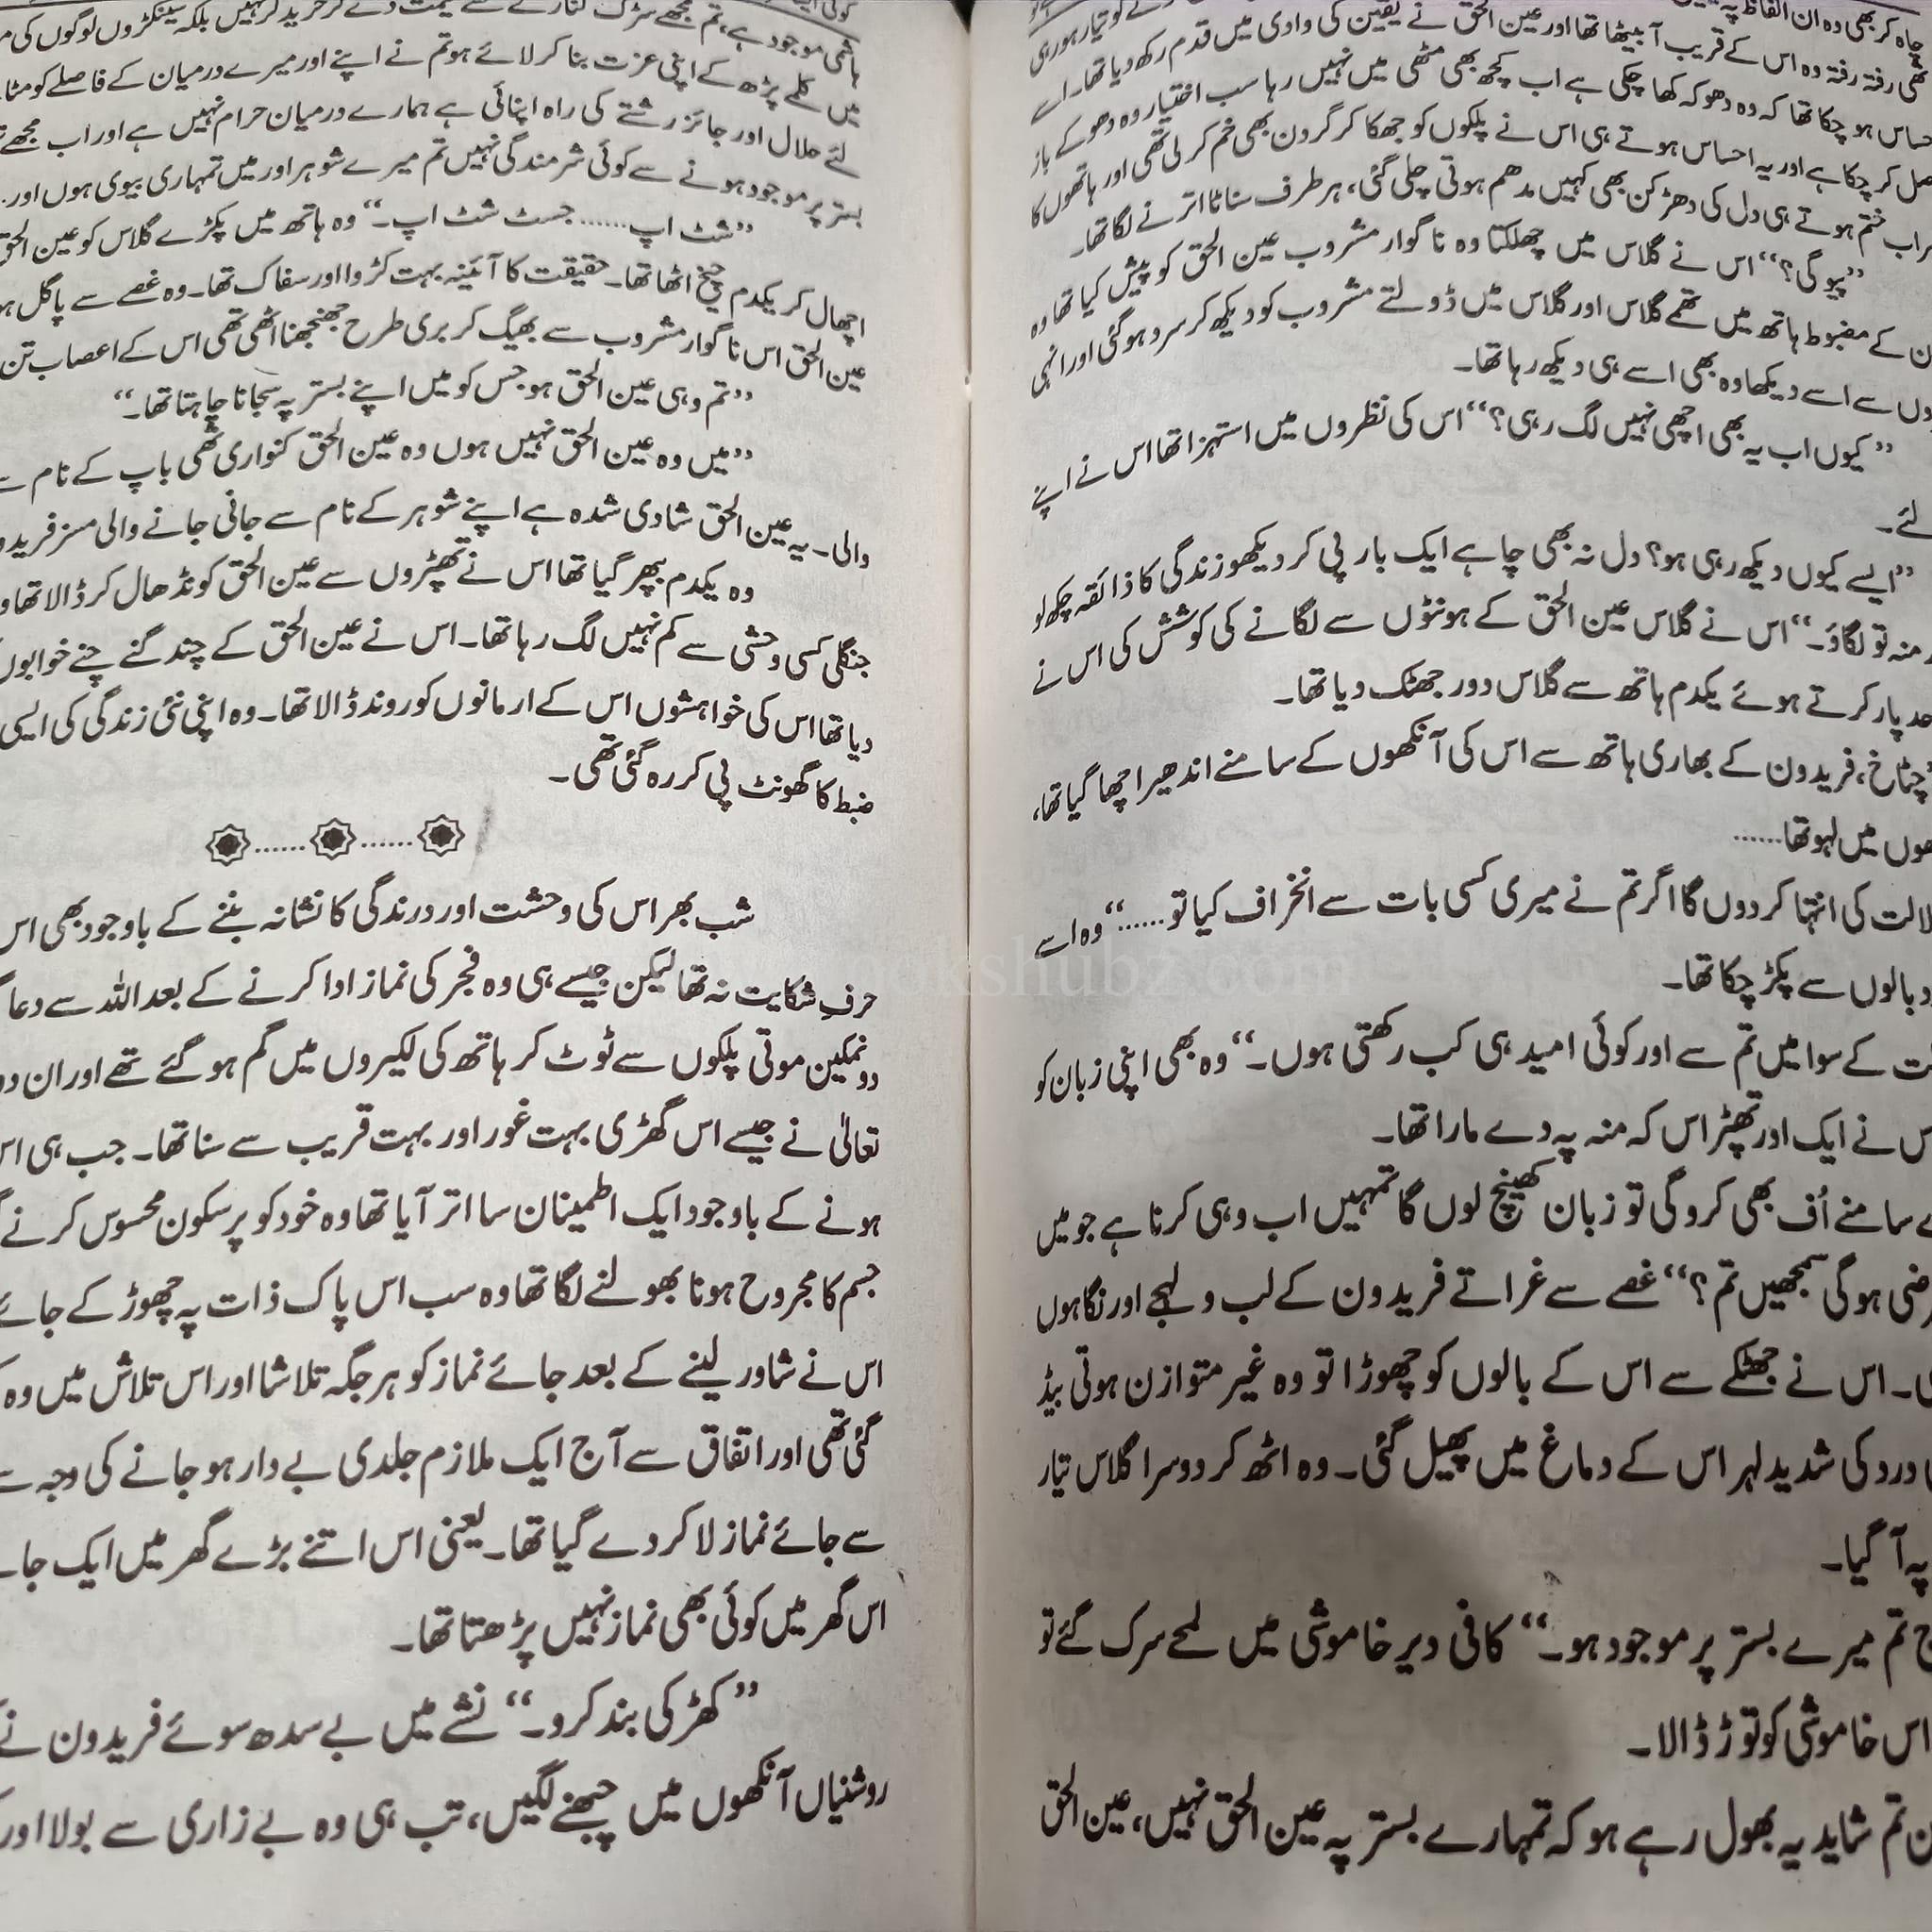 چاہ کر بھی وہ ان الفاظ پہ
تھی رفتہ رفتہ وہ اس کے قریب آ بیٹھا تھا اور عین الحق نے یقین کی وادی میں قدم رکھ دیا تھا۔ اسے
حساس ہو چکا تھا کہ وہ دھوکہ کھا چکی ہے اب کچھ بھی مٹھی میں نہیں رہا سب اختیار وہ دھوکے باز
صل کر چکا ہے اور یہ احساس ہوتے ہی اس نے پلکوں کو جھکا کر گردن بھی خم کر لی تھی اور ہاتھوں کا
راب ختم ہوتے ہی دل کی دھڑکن بھی کہیں مدھم ہوتی چلی گئی، ہر طرف سناٹا اترنے لگا تھا۔
”پیو گی؟“ اس نے گلاس میں چھلکتا وہ ناگوار مشروب عین الحق کو پیش کیا تھا وہ
ن کے مضبوط ہاتھ میں تھمے گلاس اور گلاس میں ڈولتے مشروب کو دیکھ کر سرد ہو گئی اور انہی
وں سے اسے دیکھا وہ بھی اسے ہی دیکھ رہا تھا۔
”کیوں اب یہ بھی اچھی نہیں لگ رہی؟“ اس کی نظروں میں استہزا تھا اس نے اپنے
لئے۔
”ایسے کیوں دیکھ رہی ہو؟ دل نہ بھی چاہے ایک بار پی کر دیکھو زندگی کا ذائقہ چکھ لو
منہ تو لگاؤ۔“ اس نے گلاس عین الحق کے ہونٹوں سے لگانے کی کوشش کی اس نے
حد پار کرتے ہوئے یکدم ہاتھ سے گلاس دور جھٹک دیا تھا۔
چٹاخ، فریدون کے بھاری ہاتھ سے اس کی آنکھوں کے سامنے اندھیرا چھا گیا تھا،
ھوں میں لہو تھا......
لالت کی انتہا کر دوں گا اگر تم نے میری کسی بات سے انحراف کیا تو......“ وہ اسے
بالوں سے پکڑ چکا تھا۔
ت کے سوا میں تم سے اور کوئی امید ہی کب رکھتی ہوں۔“ وہ بھی اپنی زبان کو
س نے ایک اور تھپڑ اس کہ منہ پہ دے مارا تھا۔
ے سامنے اُف بھی کرو گی تو زبان کھینچ لوں گا تمہیں اب وہی کرنا ہے جو میں
رضی ہو گی سمجھیں تم؟“ غصے سے غراتے فریدون کے لب و لہجے اور نگاہوں
۔ اس نے جھٹکے سے اس کے بالوں کو چھوڑا تو وہ غیر متوازن ہوتی بیڈ
درد کی شدید لہر اس کے دماغ میں پھیل گئی۔ وہ اٹھ کر دوسرا گلاس تیار
پہ آ گیا۔
ج تم میرے بستر پر موجود ہو۔“ کافی دیر خاموشی میں لمحے سرک گئے تو
اس خاموشی کو توڑ ڈالا۔
ن تم شاید یہ بھول رہے ہو کہ تمہارے بستر پہ عین الحق نہیں، عین الحق
ہاشمی موجود ہے، تم مجھے سڑک کنارے سے قیمت دے کر خرید کر نہیں بلکہ سینکڑوں لوگوں کی
میں کلمے پڑھ کے اپنی عزت بنا کر لائے ہو تم نے اپنے اور میرے درمیان کے فاصلے کو مٹا
لئے حلال اور جائز رشتے کی راہ اپنائی ہے ہمارے درمیان حرام نہیں ہے اور اب مجھے
بستر پر موجود ہونے سے کوئی شرمندگی نہیں تم میرے شوہر اور میں تمہاری بیوی ہوں اور
”شٹ اپ...... جسٹ شٹ اپ۔“ وہ ہاتھ میں پکڑے گلاس کو عین الحق
اچھال کر یکدم چیخ اٹھا تھا۔ حقیقت کا آئینہ بہت کڑوا اور سفاک تھا۔ وہ غصے سے پاگل
عین الحق اس ناگوار مشروب سے بھیگ کر بری طرح جھنجھنا اٹھی تھی اس کے اعصاب تن
”تم وہی عین الحق ہو جس کو میں اپنے بستر پہ سجانا چاہتا تھا۔“
”میں وہ عین الحق نہیں ہوں وہ عین الحق کنواری تھی باپ کے نام
والی۔ یہ عین الحق شادی شدہ ہے اپنے شوہر کے نام سے جانی جانے والی مسز فریدو
وہ یکدم بپھر گیا تھا اس نے تھپڑوں سے عین الحق کو نڈھال کر ڈالا تھا
جنگلی کسی وحشی سے کم نہیں لگ رہا تھا۔ اس نے عین الحق کے چند گنے چنے خوابوں
دیا تھا اس کی خواہشوں اس کے ارمانوں کو روند ڈالا تھا۔ وہ اپنی نئی زندگی کی ایسی
ضبط کا گھونٹ پی کر رہ گئی تھی۔
شب بھر اس کی وحشت اور درندگی کا نشانہ بننے کے باوجود بھی اس
حرفِ شکایت نہ تھا لیکن جیسے ہی وہ فجر کی نماز ادا کرنے کے بعد اللہ سے دعا
دو نمکین موتی پلکوں سے ٹوٹ کر ہاتھ کی لکیروں میں گم ہو گئے تھے اور ان دو
تعالیٰ نے جیسے اس گھڑی بہت غور اور بہت قریب سے سنا تھا۔ جب ہی اس
ہونے کے باوجود ایک اطمینان سا اتر آیا تھا وہ خود کو پرسکون محسوس کرنے
جسم کا مجروح ہونا بھولنے لگا تھا وہ سب اس پاک ذات پہ چھوڑ کے جائے
اس نے شاور لینے کے بعد جائے نماز کو ہر جگہ تلاشا اور اس تلاش میں وہ
گئی تھی اور اتفاق سے آج ایک ملازم جلدی بے دار ہو جانے کی وجہ سے
سے جائے نماز لا کر دے گیا تھا۔ یعنی اس اتنے بڑے گھر میں ایک
اس گھر میں کوئی بھی نماز نہیں پڑھتا تھا۔
”کھڑکی بند کرو۔“ نشے میں بے سدھ سوئے فریدون نے
روشنیاں آنکھوں میں چبھنے لگیں، تب ہی وہ بے زاری سے بولا اور